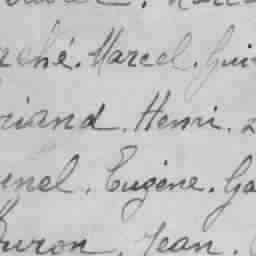 ché. Marcel. Gui
riand. Henri.
nel. Eugène. Ga
uron. Jean.